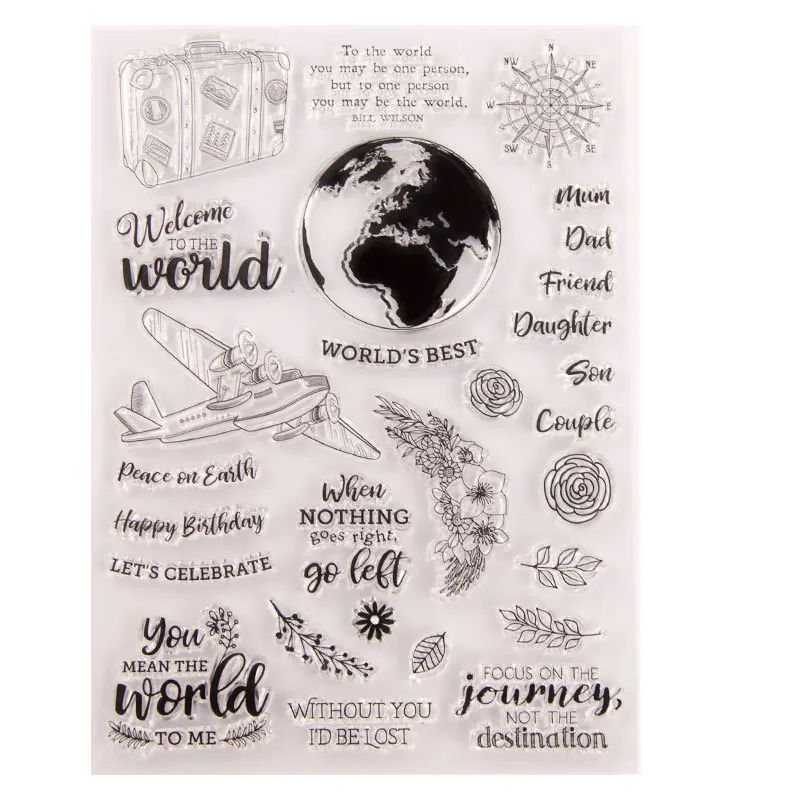 To the world
you may be one person,
but to one person
you may be the world.
BILL WILSON
N
NW
NE
W
E
SW
SE
S
Welcome
TO THE
world
WORLD'S BEST
Mum
Dad
Friend
Daughter
Son
Couple
Peace on Earth
Happy Birthday
LET'S CELEBRATE
When
NOTHING
goes right,
go left
You
MEAN THE
world
TO ME
WITHOUT YOU
I'D BE LOST
FOCUS ON THE
journey,
NOT THE
destination